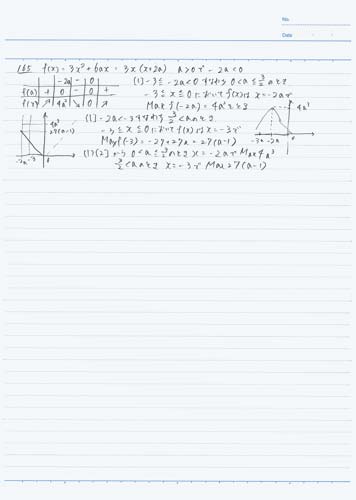 No.
Date
165 f(x) = 3x²+6ax = 3x(x+2a) a>0で -2a<0
-2a - 0
f'(x) + 0 - 0 +
f(x) ↗ 4a³ ↘ 0 ↗
[1] -3≦-2a<0 すなわち 0<a≦3/2のとき
-3≦x≦0において f(x)は x=-2aで
Max f(-2a) = 4a³をとる
[2] -2a<-3 すなわち 3/2<aのとき
-3≦x≦0において f(x)は x=-3で
Max f(-3) = -27+27a = 27(a-1)
[1][2]から 0<a≦3/2のとき x=-2aで Max 4a³
3/2<aのとき x=-3で Max 27(a-1)
4a³
27(a-1)
-2a -3 0
4a³
-3 -2a 0